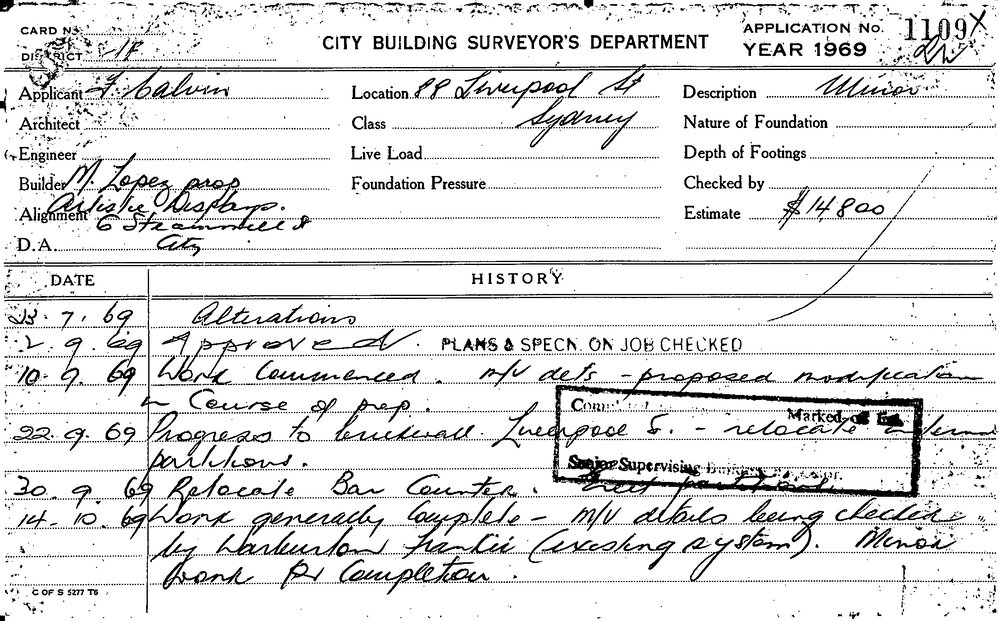 CARD No.
DISTRICT 1F
CITY BUILDING SURVEYOR'S DEPARTMENT
APPLICATION No. 1109
YEAR 1969
Applicant F Calvin
Location 88 Liverpool St
Description Minor
Architect
Class Sydney
Nature of Foundation
Engineer
Live Load
Depth of Footings
Builder M. Lopez prop
Foundation Pressure
Checked by
Alignment Artistic Displays.
Estimate $14800
6 Steammill St
D.A. City
DATE
HISTORY
23. 7. 69 Alterations
2. 9. 69 Approved. PLANS & SPECN. ON JOB CHECKED
10. 9. 69 Work Commenced. m/v dets - proposed modification
in Course of prep.
Completed
Marked off
22. 9. 69 Progress to brickwall Liverpool St. - relocate
partitions.
Senior Supervising
30. 9. 69 Relocate Bar Counter.
14. 10. 69 Work generally Complete - m/v details being checked
by Warburton Frankie (existing system). Minor
work for Completion.
C OF S 5277 T6